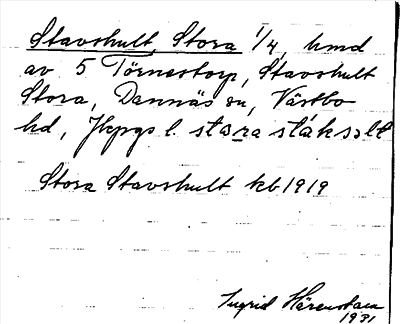 Stavshult, Stora 1/4, hmd
av 5 Törnestorp, Stavshult
Stora, Dannäs sn, Västbo
hd, Jkpgs l. sta̱ra stáksɔlt
Stora Stavshult kb 1919
Ingrid Härenstam
1931